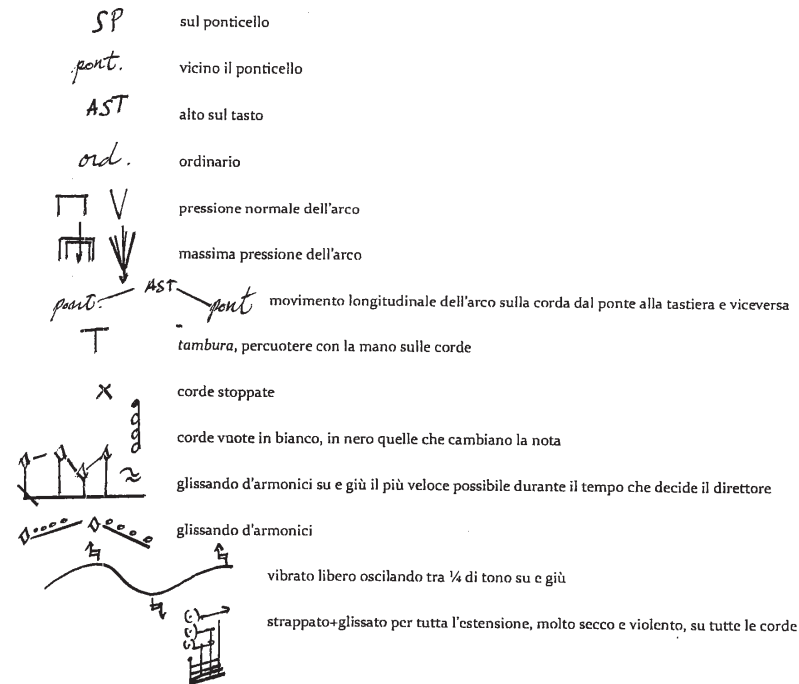 SP sul ponticello
pont. vicino il ponticello
AST alto sul tasto
ord. ordinario
pressione normale dell'arco
massima pressione dell'arco
pont. AST pont movimento longitudinale dell'arco sulla corda dal ponte alla tastiera e viceversa
T tambura, percuotere con la mano sulle corde
x corde stoppate
corde vuote in bianco, in nero quelle che cambiano la nota
glissando d'armonici su e giù il più veloce possibile durante il tempo che decide il direttore
glissando d'armonici
vibrato libero oscilando tra ¼ di tono su e giù
strappato+glissato per tutta l'estensione, molto secco e violento, su tutte le corde